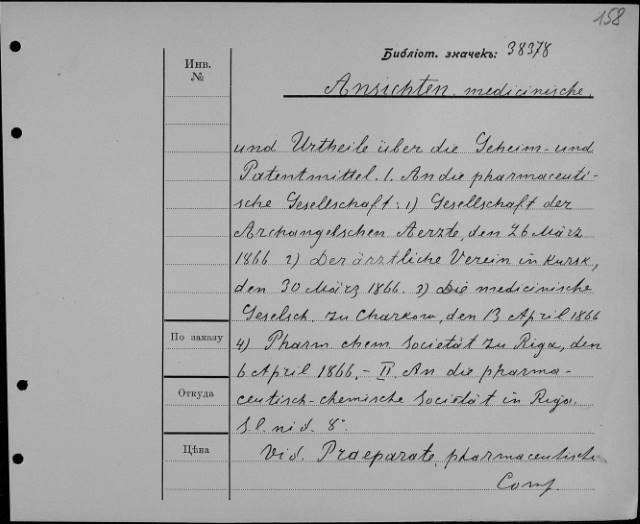 158
Библіот. значекъ: 38378
Инв.
№
Ansichten medicinische.
und Urtheile über die Geheim- und
Patentmittel. 1. An die pharmaceuti-
sche Gesellschaft: 1) Gesellschaft der
Archangelschen Aerzte, den 26 März
1866 2) Der ärztliche Verein in Kursk,
den 30 März 1866. 3) Die medicinische
Geselsch. zu Charkow, den 13 April 1866
По заказу
4) Pharm. chem. Societät zu Riga, den
6 April 1866. – II. An die pharma-
Откуда
ceutisch-chemische Societät in Riga.
S. l. ni d. 8°.
Цѣна
Vid. Praeparate, pharmaceutisch
Comp.